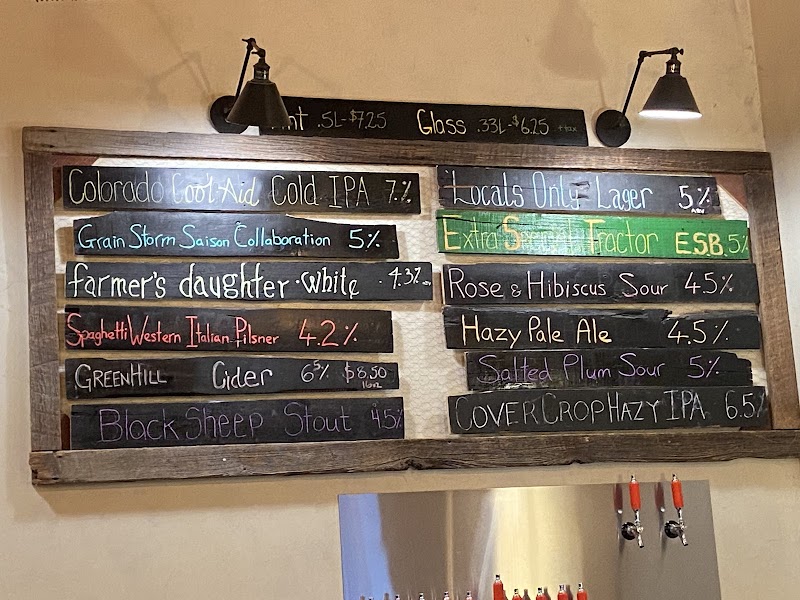 .5L-$7.25 Glass .33L-$6.25 +tax
Colorado Cool-Aid Cold IPA 7%
Grain Storm Saison Collaboration 5%
farmer's daughter·White 4.3%
Spaghetti Western Italian Pilsner 4.2%
GREENHILL Cider 6.5% $8.50
16oz
Black Sheep Stout 4.5%
Locals Only Lager 5%
Extra Special Tractor E.S.B. 5%
Rose & Hibiscus Sour 4.5%
Hazy Pale Ale 4.5%
Salted Plum Sour 5%
COVER CROP HAZY IPA 6.5%